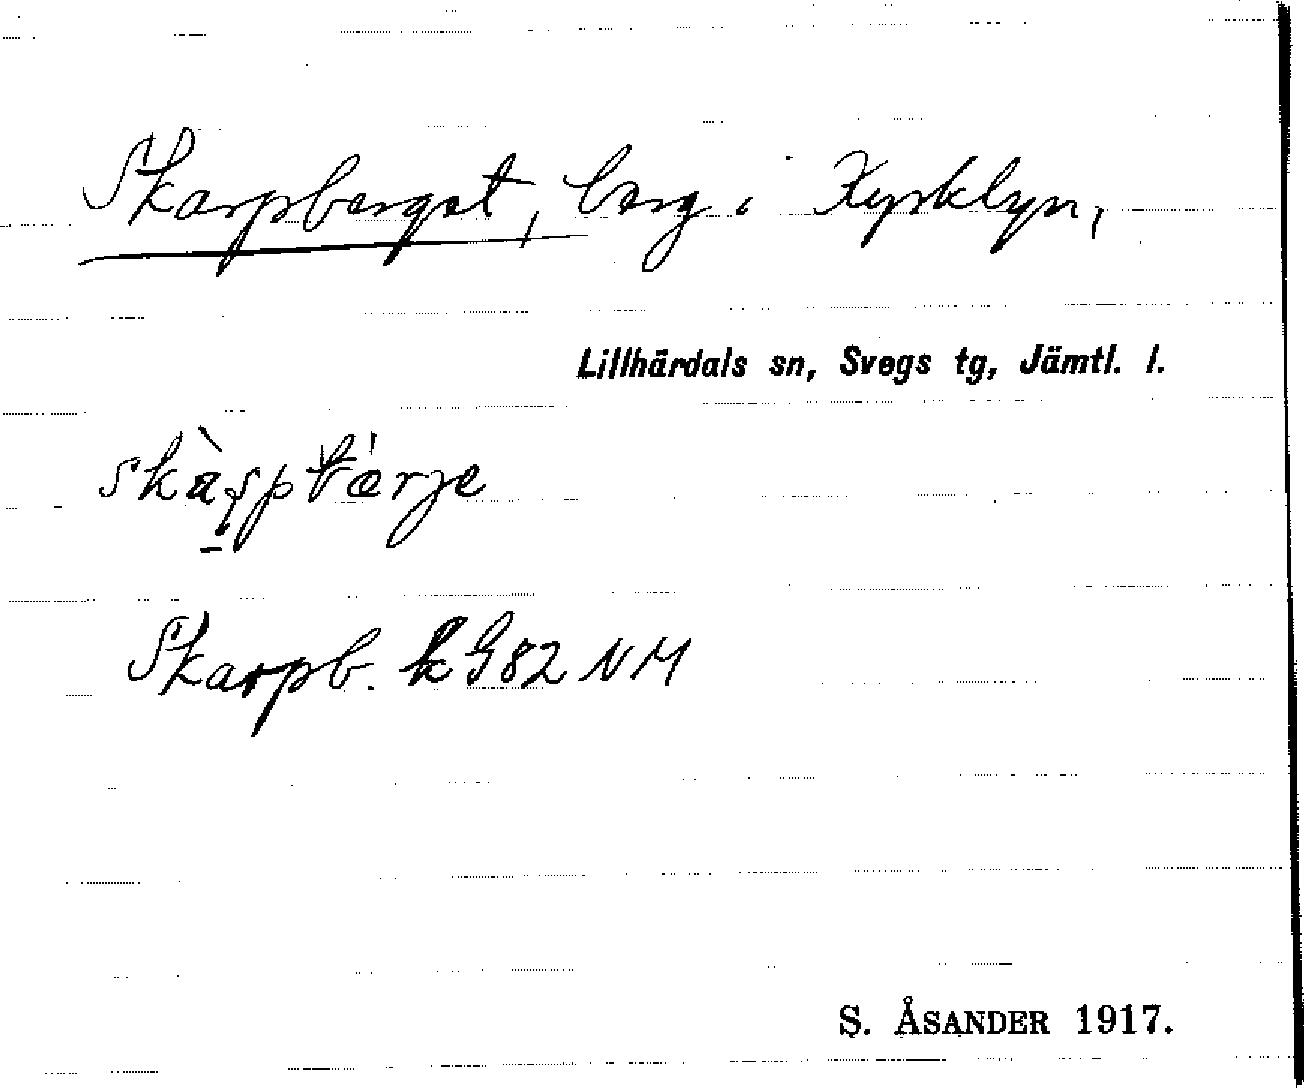 Skarpberget, berg i Kyrkbyn,
Lillhärdals sn, Svegs tg, Jämtl. l.
Skarpb. k G 82 NM
S. ÅSANDER 1917.